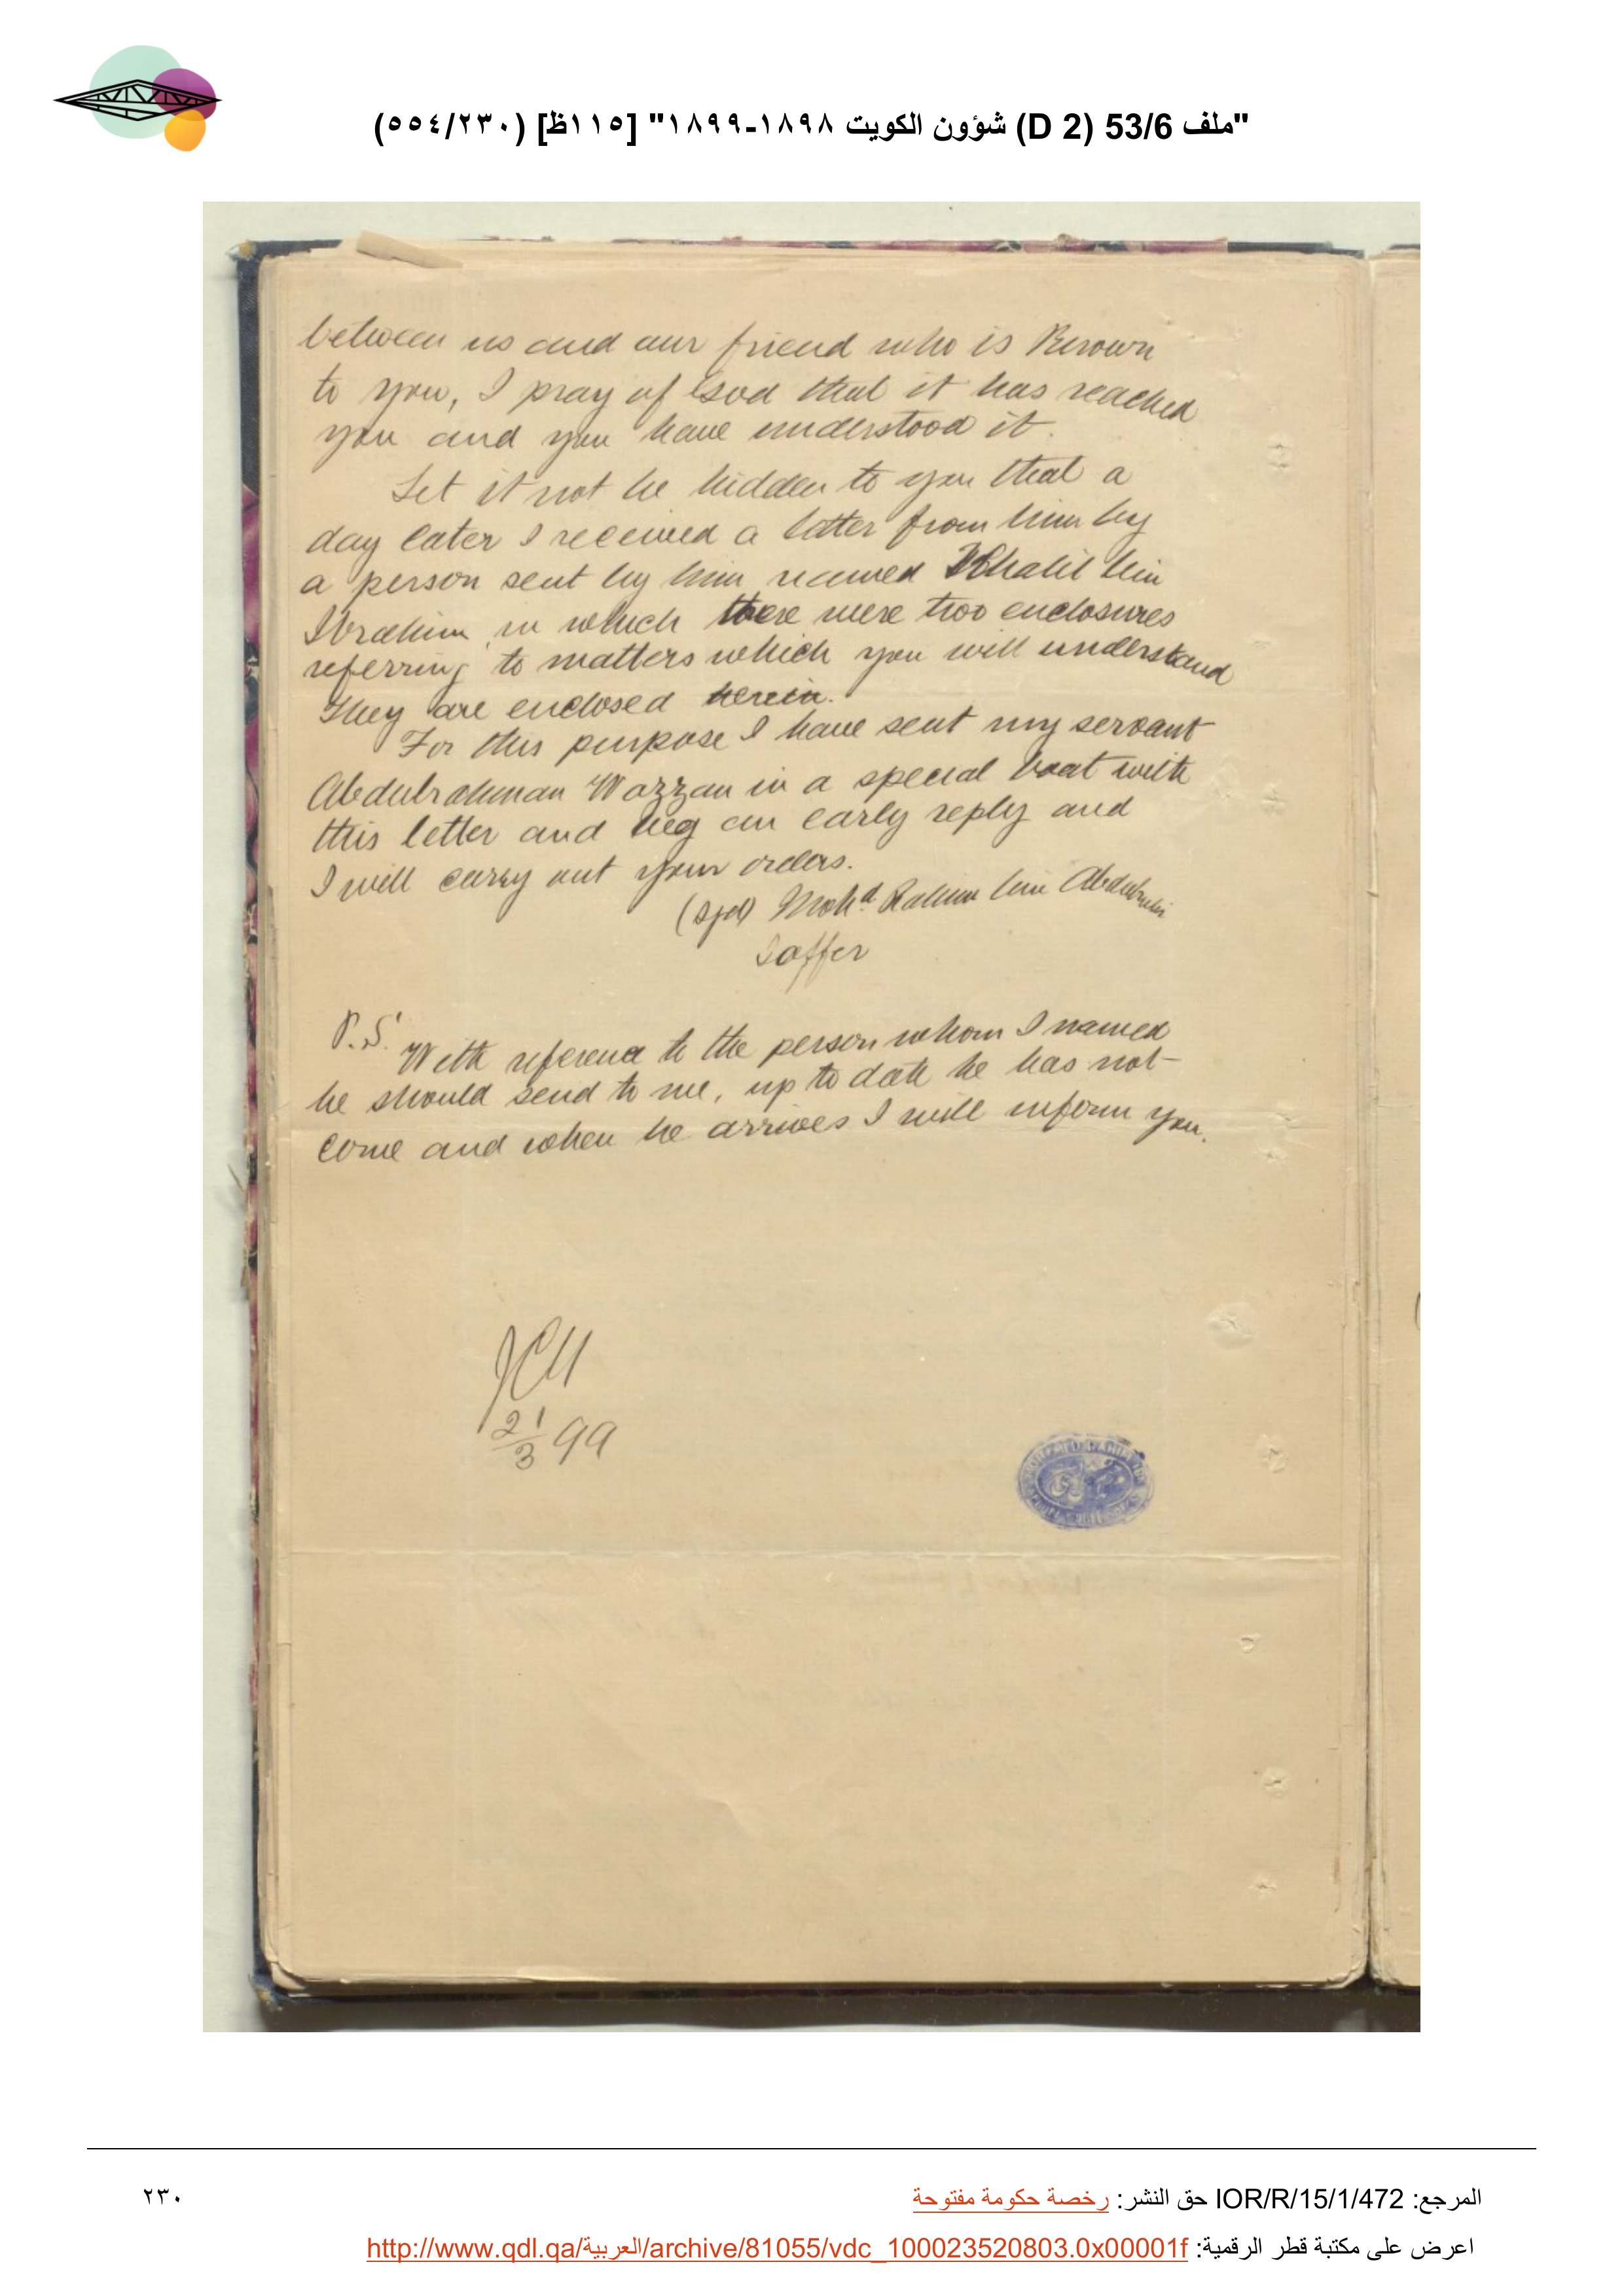 "ملف 53/6 (D 2) شؤون الكويت ١٨٩٨-١٨٩٩" [١١٥ظ] (٢٣٠/٥٥٤)
between us and our friend who is Known
to you, I pray of God that it has reached
you and you have understood it.
Let it not be hidden to you that a
day later I received a letter from him by
a person sent by him named Khalil bin
Ibrahim in which there were two enclosures
referring to matters which you will understand
They are enclosed herein.
For this purpose I have sent my servant
Abdulrahman Wazzan in a special boat with
this letter and beg an early reply and
I will carry out your orders.
(Sgd) Mohd. Rahim bin Abdulnebi
Saffer
P.S. With reference to the person whom I named
he should send to me, up to date he has not
come and when he arrives I will inform you.
21/3 99
المرجع: IOR/R/15/1/472 حق النشر: رخصة حكومة مفتوحة
٢٣٠
اعرض على مكتبة قطر الرقمية: http://www.qdl.qa/العربية/archive/81055/vdc_100023520803.0x00001f